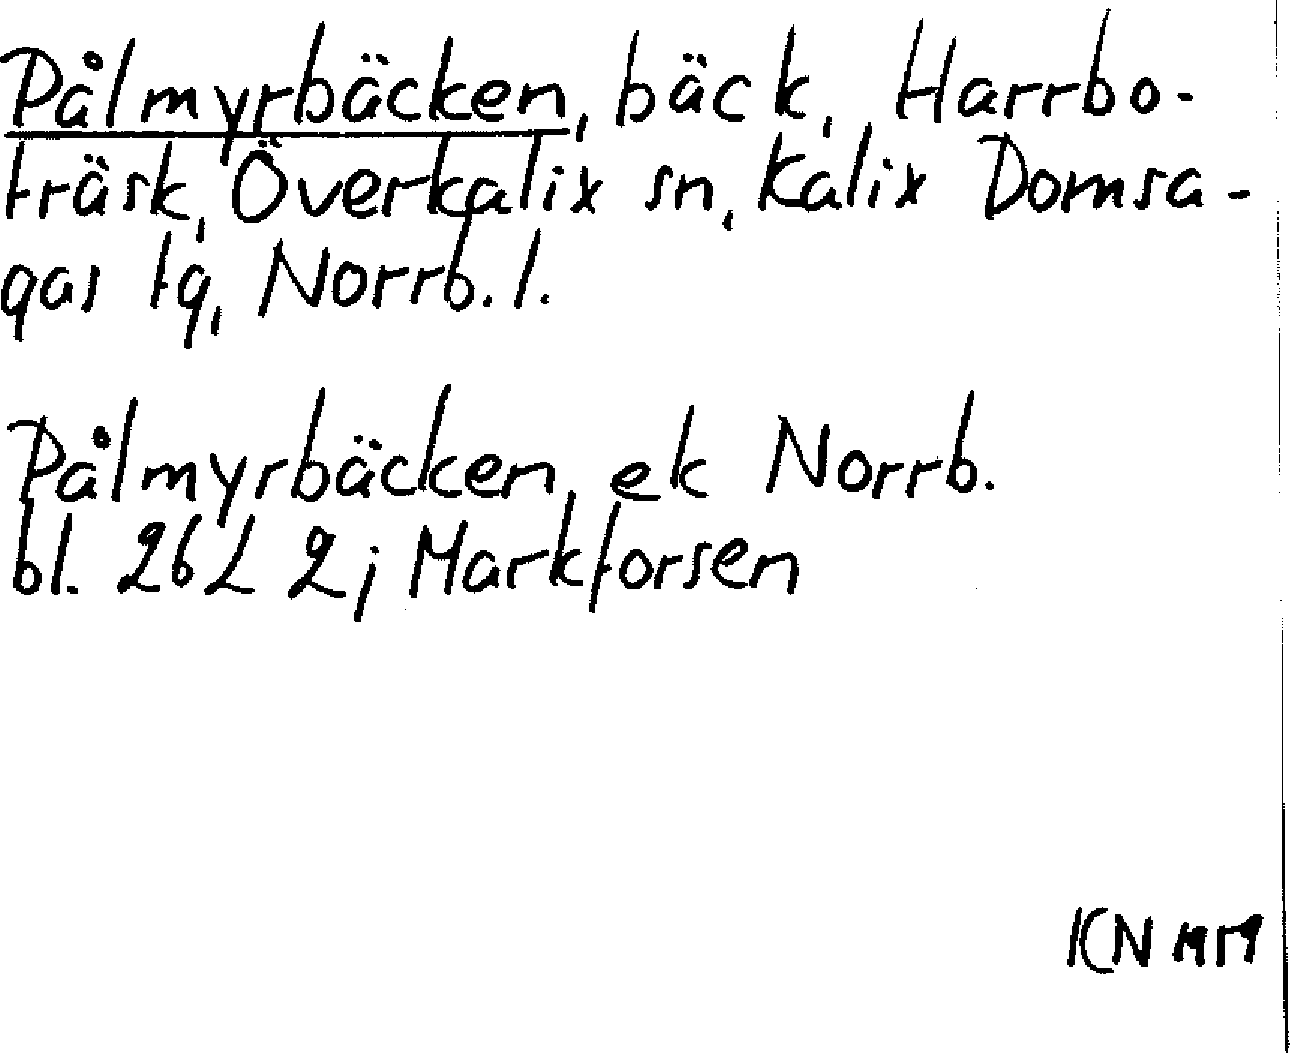 Pålmyrbäcken, bäck, Harrbo-
träsk, Överkalix sn, Kalix Domsa-
gas tg, Norrb. l.
Pålmyrbäcken, ek Norrb.
bl. 26 L 2j Markforsen
KN